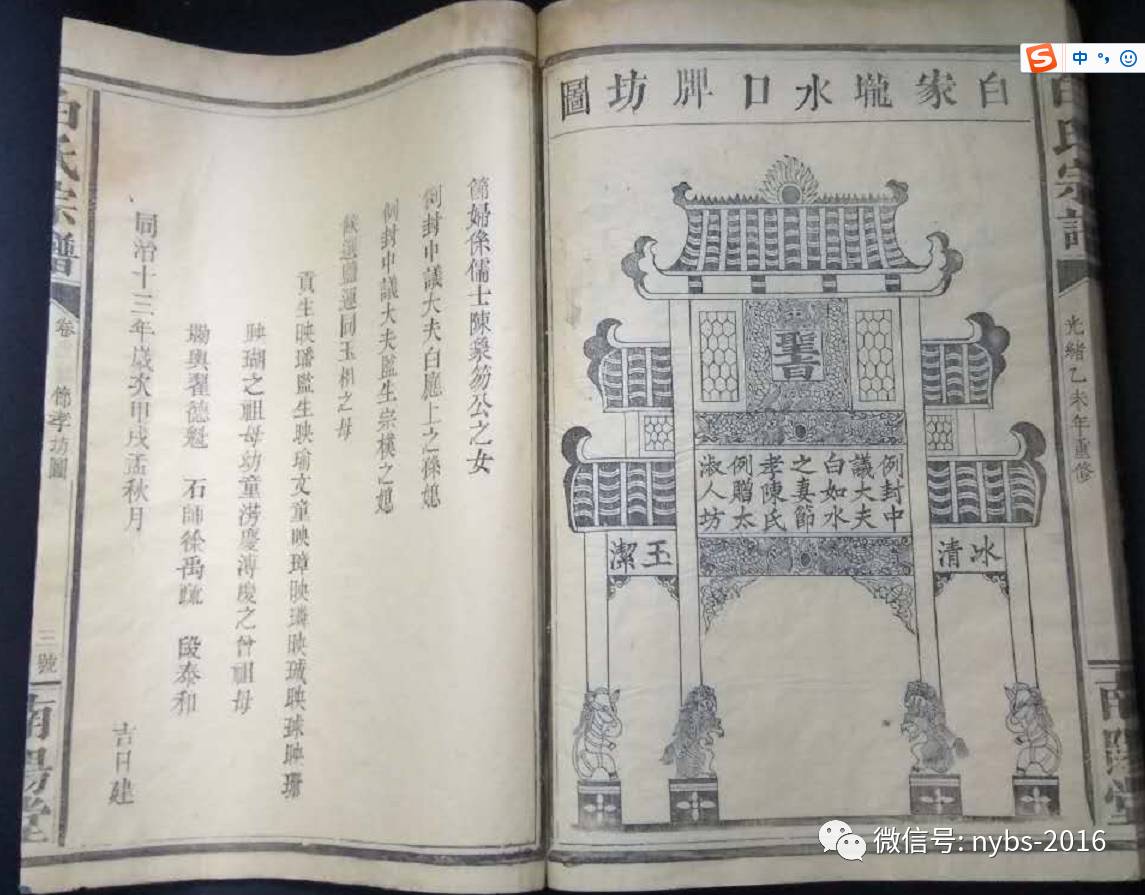 白家壠水口牌坊圖
聖旨
例封中
議大夫
白如水
之妻節
孝陳氏
例贈太
淑人坊
冰清
玉潔
白氏宗譜
光緒乙未年重修
南陽堂
節婦係儒士陳彖笏公之女
例封中議大夫白
上之孫媳
例封中議大夫監生宗樸之媳
候選鹽運同玉相之母
貢生映璠監生映瑜文童映璋映璘映珹映球映珊
映瑚之祖母幼童澇慶溥慶之曾祖母
石師徐禹
段泰和
同治十三年歲次甲戌孟秋月
吉日建
白氏宗譜
卷
節孝坊圖
三號
南陽堂
中
微信号: nybs-2016